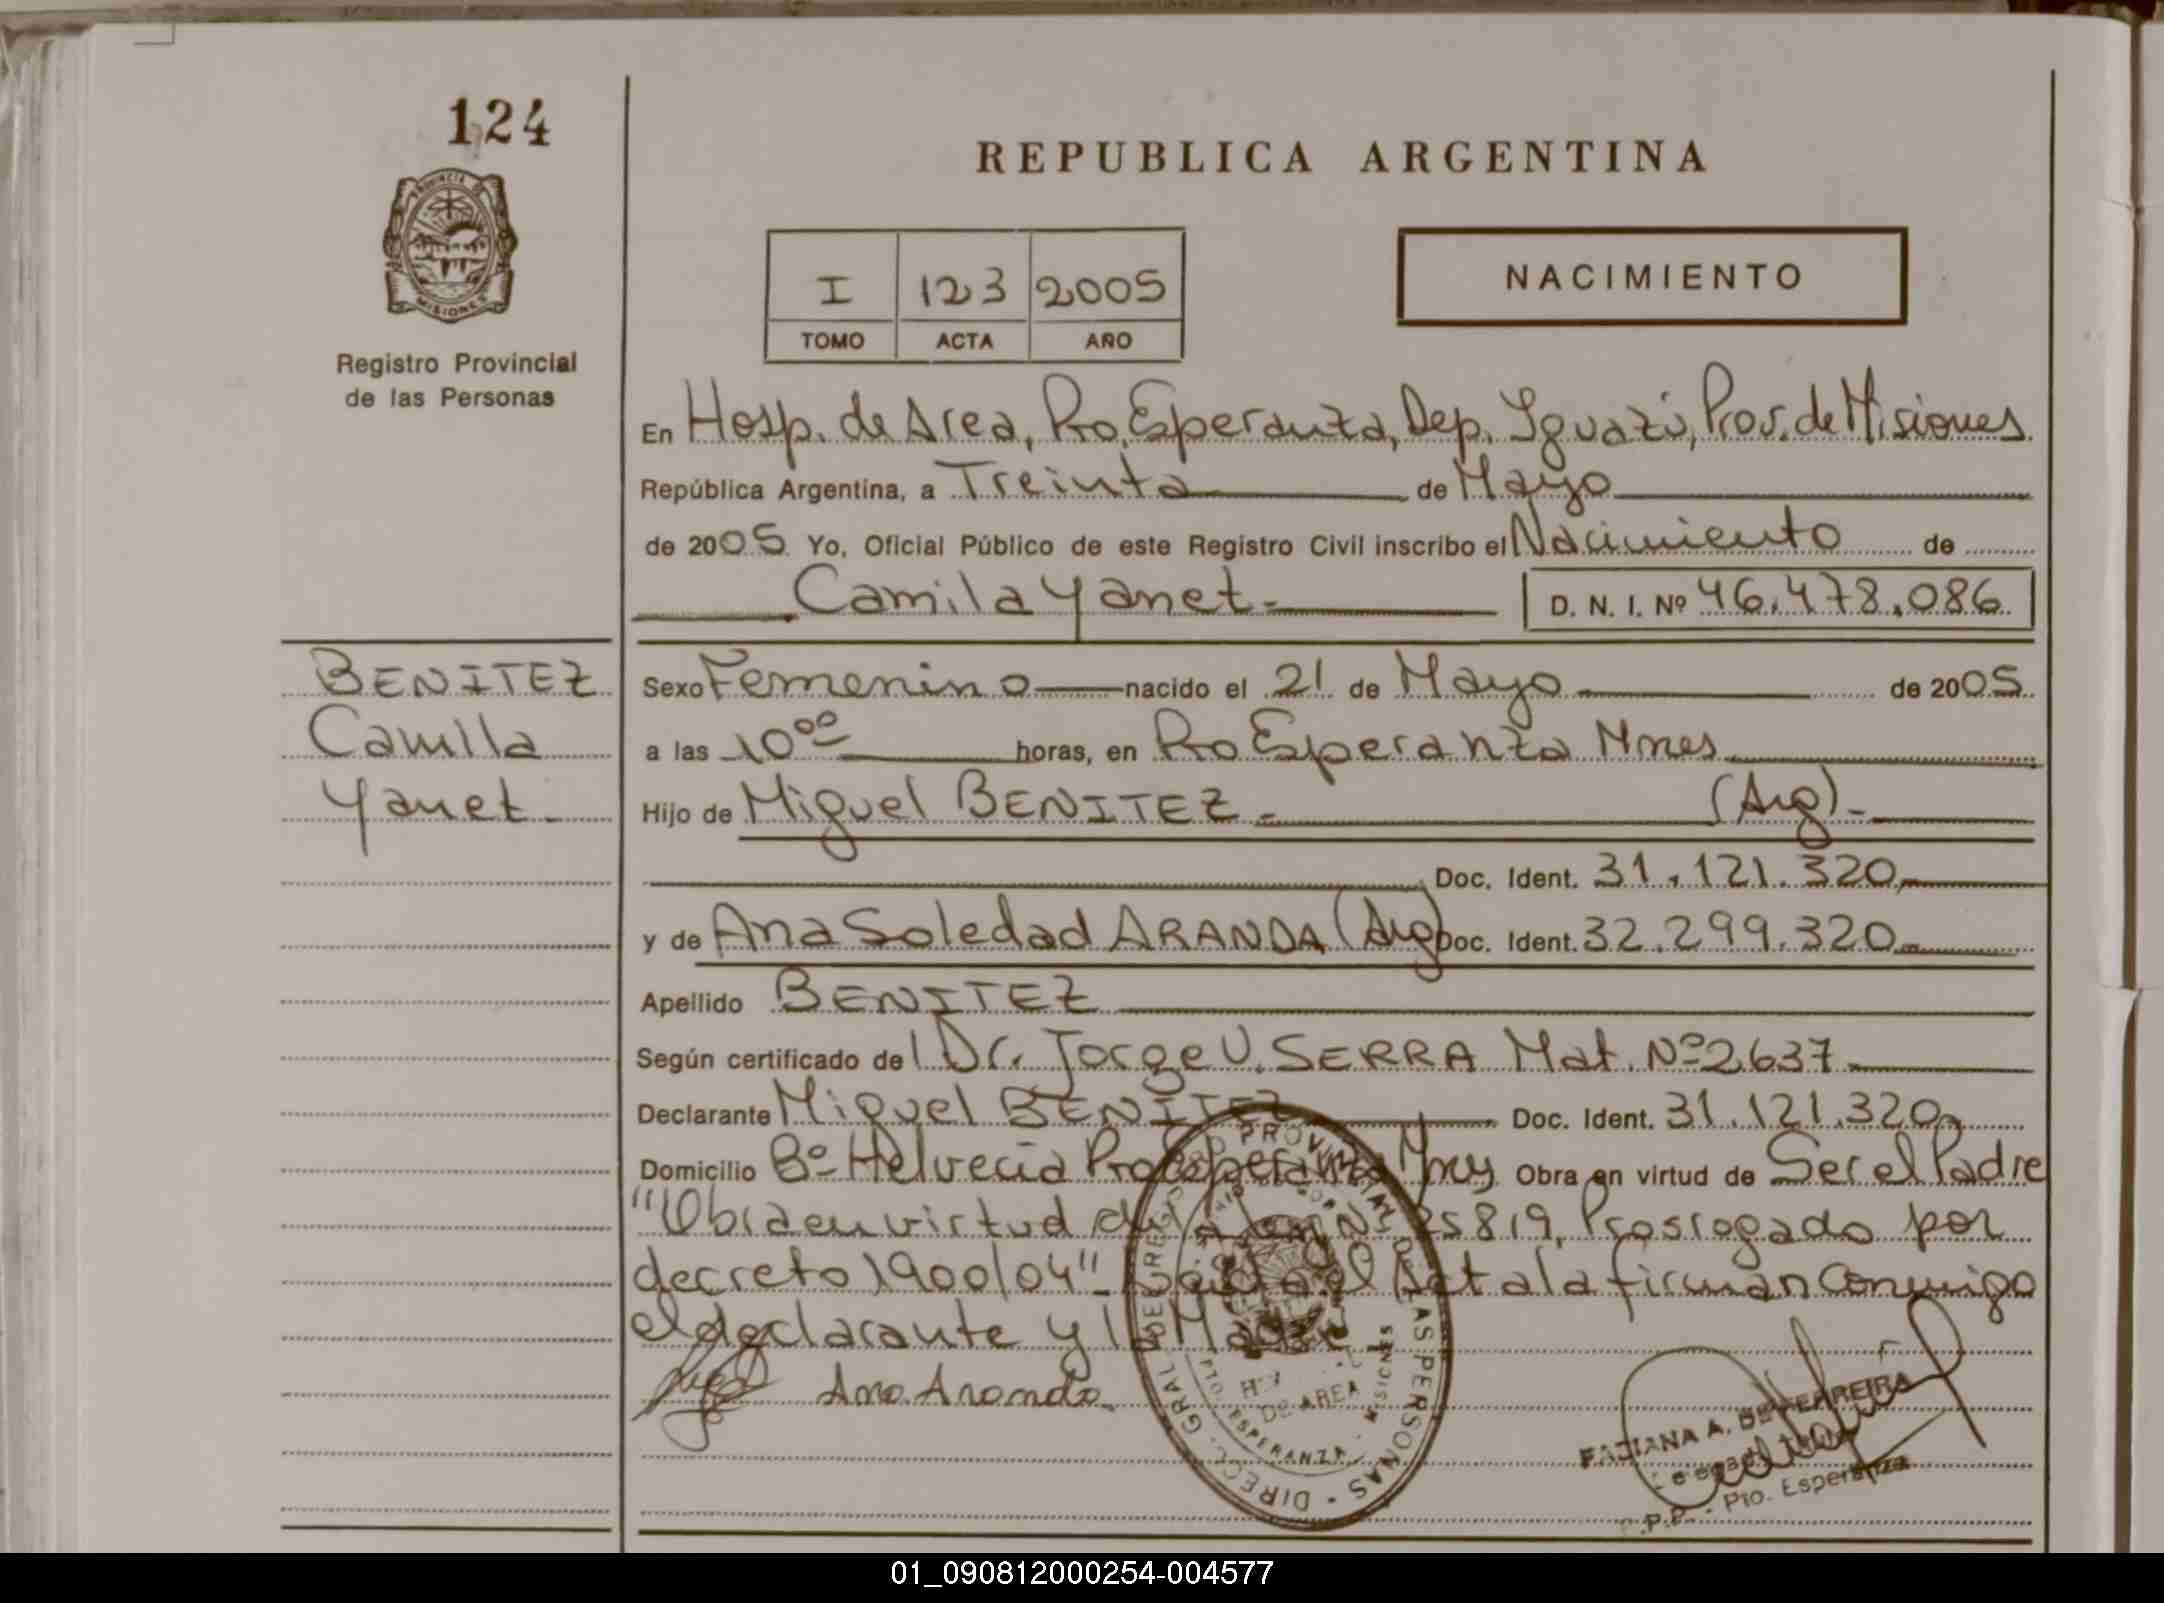 124
PROVINCIA DE
MISIONES
Registro Provincial
de las Personas
REPUBLICA ARGENTINA
I 123 2005
TOMO ACTA AÑO
NACIMIENTO
En Hosp. de Area, Pto. Esperanza, Dep. Iguazú, Prov. de Misiones
República Argentina, a Treinta de Mayo
de 2005 Yo, Oficial Público de este Registro Civil inscribo el Nacimiento de
Camila Yanet.- D. N. I. Nº 46.478.086
BENITEZ
Camila
Yanet.-
Sexo Femenino nacido el 21 de Mayo de 2005
a las 10⁰⁰ horas, en Pto Esperanza Mnes
Hijo de Miguel BENITEZ.- (Arg).-
Doc. Ident. 31.121.320.-
y de Ana Soledad ARANDA (Arg) Doc. Ident. 32.299.320.-
Apellido BENITEZ
Según certificado del Dr. Jorge U. SERRA Mat. Nº 2637
Declarante Miguel BENITEZ Doc. Ident. 31.121.320.-
Domicilio Bº Helvecia Pto Esperanza Mnes Obra en virtud de Ser el Padre
"Obra en virtud de la Ley Nº 25819, Prorrogado por
decreto 1900/04".- Leida el Acta la firman Conmigo
el declarante y la Madre
Ana Aranda.
DIRECC. GRAL. DEL REGISTRO PROVINCIAL DE LAS PERSONAS
DE AREA
PTO. ESPERANZA - MISIONES
FABIANA A. DE FERREIRA
R.P.P. - Pto. Esperanza
01_090812000254-004577